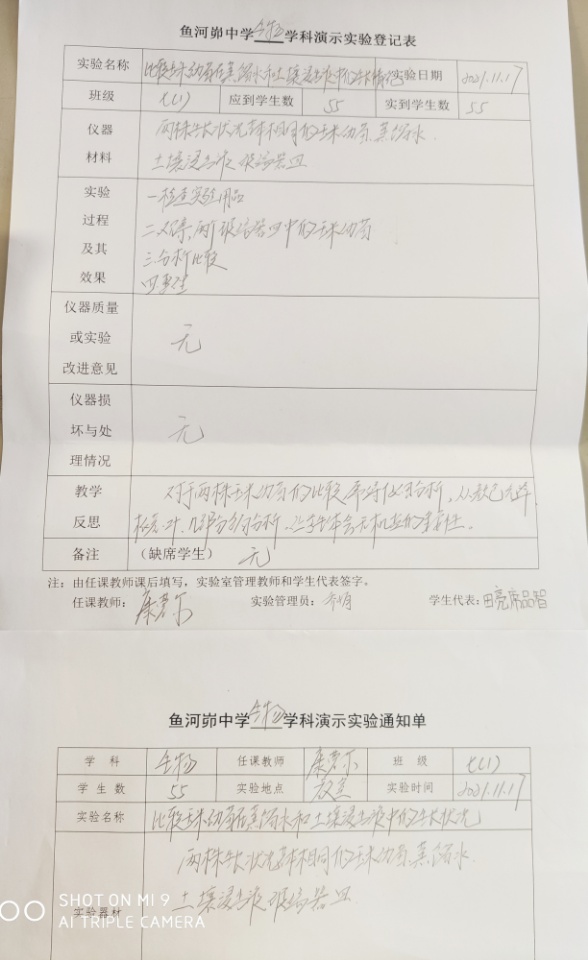 鱼河峁中学生物学科演示实验登记表
实验名称 比较玉米幼苗在蒸馏水和土壤浸出液中的生长情况 实验日期 2021.11.17
班级 七(1) 应到学生数 55 实到学生数 55
仪器 两株生长状况基本相同的玉米幼苗 蒸馏水
材料 土壤浸出液 玻璃器皿
实验 一检查实验用品
过程 二观察两个玻璃器皿中的玉米幼苗
及其 三分析比较
效果 四
仪器质量
或实验 无
改进意见
仪器损
坏与处 无
理情况
教学 对于两株玉米幼苗的比较 分析,从
反思 分析 无机盐的重要性。
备注 (缺席学生) 无
注:由任课教师课后填写,实验室管理教师和学生代表签字。
任课教师: 实验管理员: 学生代表:田亮 席品智
鱼河峁中学生物学科演示实验通知单
学 科 生物 任课教师 班 级 七(1)
学 生 数 55 实验地点 教室 实验时间 2021.11.17
实验名称 比较玉米幼苗在蒸馏水和土壤浸出液中的生长状况
两株生长状况基本相同的玉米幼苗 蒸馏水
实验器材 土壤浸出液 玻璃器皿
SHOT ON MI 9
AI TRIPLE CAMERA